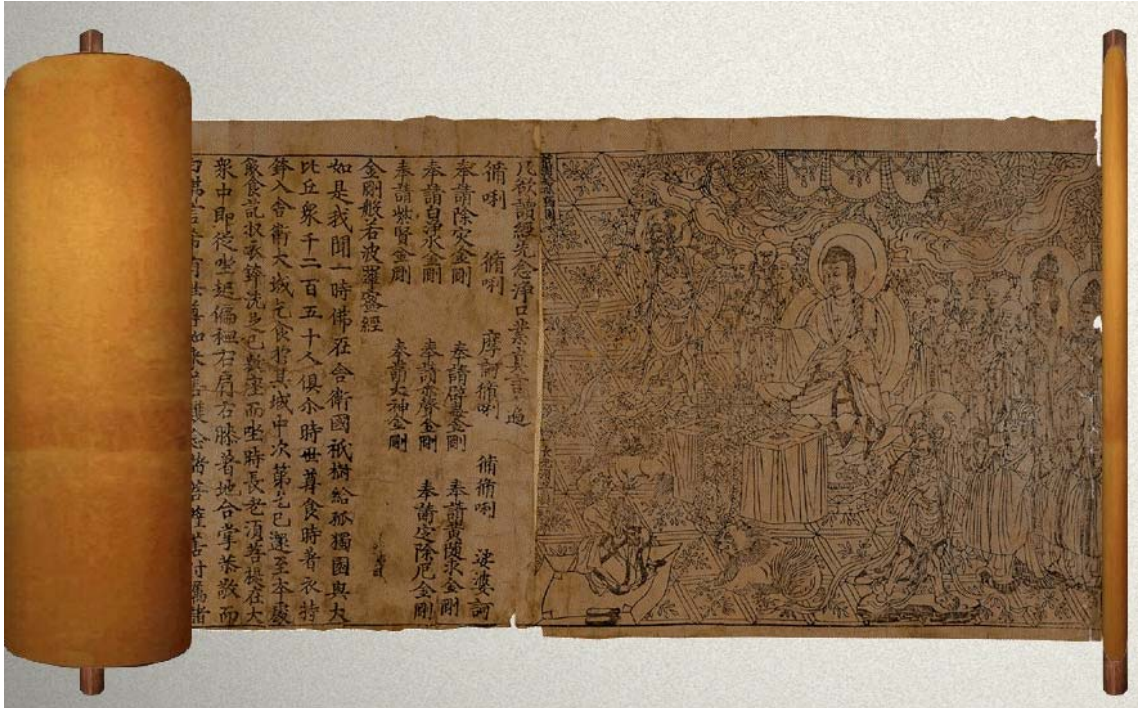 凡欲讀經先念淨口業真言一遍
脩唎 脩唎 摩訶脩唎 脩脩唎 娑婆訶
奉請除灾金剛 奉請辟毒金剛 奉請黄隨求金剛
奉請白淨水金剛 奉請赤聲金剛 奉請定除厄金剛
奉請紫賢金剛 奉請大神金剛
金剛般若波羅蜜經
如是我聞一時佛在舍衛國祇樹給孤獨園與大
比丘衆千二百五十人俱尒時世尊食時著衣持
鉢入舍衛大城乞食於其城中次第乞已還至本處
飯食訖收衣鉢洗足已敷座而坐時長老須菩提在大
衆中即從坐起偏袒右肩右膝著地合掌恭敬而
白佛言希有世尊如來善護念諸菩薩善付囑諸